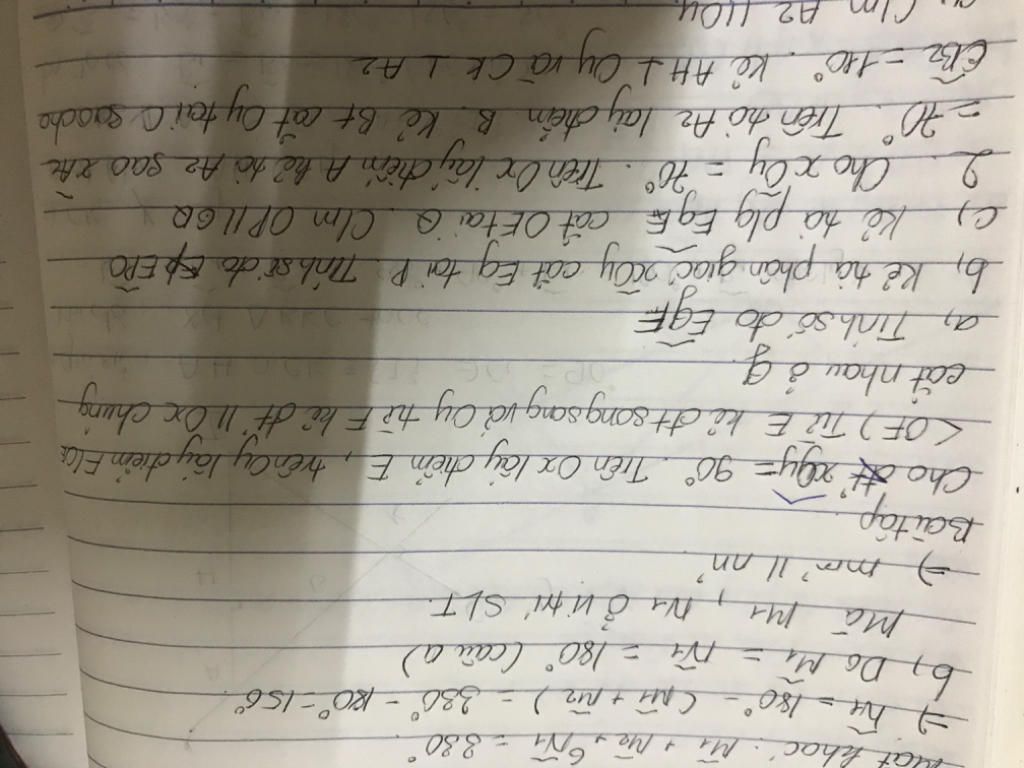 Mặt khác: M1 + N2 + 6N1 = 330°
=> N1 = 180° - (M1 + N2) = 330° - 180° = 150°
b, Do M1 = N1 = 180° (câu a)
Mà M1, N1 ở vị trí SLT.
=> mm' // nn'
Bài tập
Cho xOy = 90°. Trên Ox lấy điểm E, trên Oy lấy điểm F (OE
< OF) Từ E kẻ đt song song với Oy từ F kẻ đt // Ox chúng
cắt nhau ở g.
a, Tính số đo EgF
b, Kẻ tia phân giác xOy cắt Eg tại P Tính số đo EPO
c, Kẻ tia p/g EgF cắt OF tại Q C/m OP // GQ
2. Cho xOy = 70°. Trên Ox lấy điểm A kẻ tia Az sao xAz
= 70°. Trên tia Az lấy điểm B. Kẻ Bt cắt Oy tại C sao cho
CBz = 110°. Kẻ AH ⊥ Oy và CK ⊥ Az
a, C/m Az // Oy